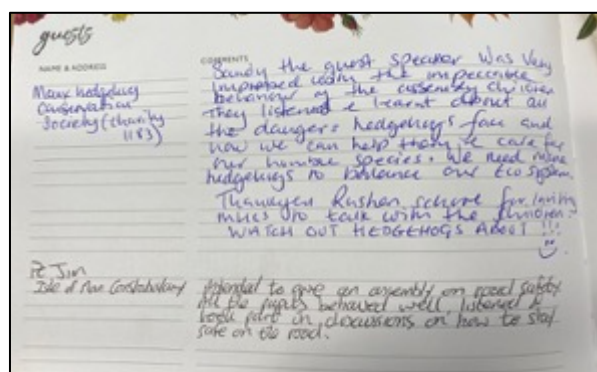 guests
NAME & ADDRESS
COMMENTS
Manx hedgehog
Conservation
Society (charity
1183)
Sandy the guest speaker was very
impressed with the impeccable
behaviour of the assembly children
They listened & learnt about all
the dangers hedgehogs face and
how we can help them & care for
our humble species. We need more
hedgehogs to balance our Eco System.
Thankyou Rushen school for inviting
MHCS to talk with the children.
WATCH OUT HEDGEHOGS ABOUT !!!
Pc Jim
Isle of Man Constabulary
Attended to give an assembly on road safety
All the pupils behaved well, listened &
took part in discussions on how to stay
safe on the road.